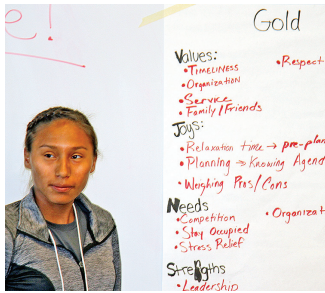 e!
Gold
Values:
• TIMELINESS
• Respect
• ORGANIZATION
• Service
• Family/Friends
Joys:
• Relaxation time → pre-plan
• Planning → Knowing Agend
• Weighing Pros/Cons
Needs
• Competition
• Organizat
• Stay Occupied
• Stress Relief
Strengths
• Leadership